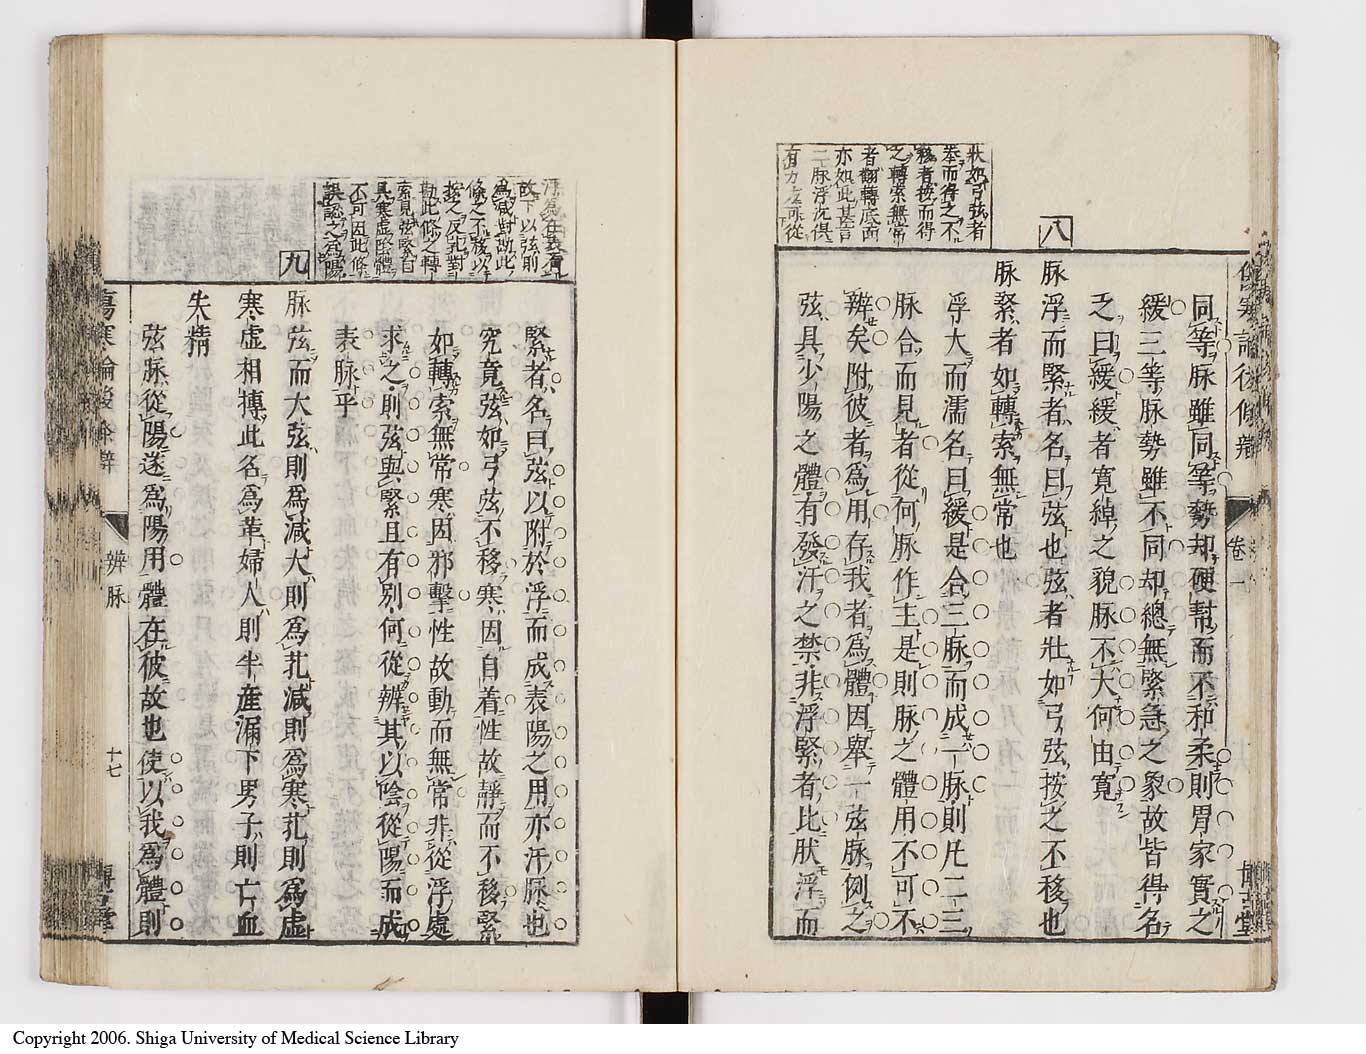 狀如弓弦者
擧而得之不
移者按而得
之轉索無常
者翻轉底面
亦如此甚言
二脉浮沉俱
有力
八
同等脉雖同等勢却硬幫而不和柔則胃家實之
緩三等脉勢雖不同却總無緊急之象故皆得名
之曰緩緩者寬綽之貌脉不大何由寬
脉浮而緊者名曰弦也弦者壯如弓弦按之不移也
脉緊者如轉索無常也
浮大而濡名曰緩是合三脉而成一脉則凡二三
脉合而見者從何脉作主是則脉之體用不可不
辨矣附彼者爲用存我者爲體因舉一弦脉例之
弦具少陽之體有發汗之禁非浮緊者比肰浮而
卷一
故下以弦則
爲減對勘此
條之不移以
按之反此對
勘此條之轉
索見弦緊自
具寒虛陰體
不可因此條
誤認之爲陽
九
緊者名曰弦以附於浮而成表陽之用亦汗脉也
究竟弦如弓弦不移寒因自着性故靜而不移緊
如轉索無常寒因邪擊性故動而無常非從浮處
求之則弦與緊且有別何從辨其以陰從陽而成
表脉乎
脉弦而大弦則爲減大則爲芤減則爲寒芤則爲虛
寒虛相摶此名爲革婦人則半產漏下男子則亡血
失精
弦脉從陽遂爲陽用體在彼故也使以我爲體則
傷寒論後條辨
辨脉
十七